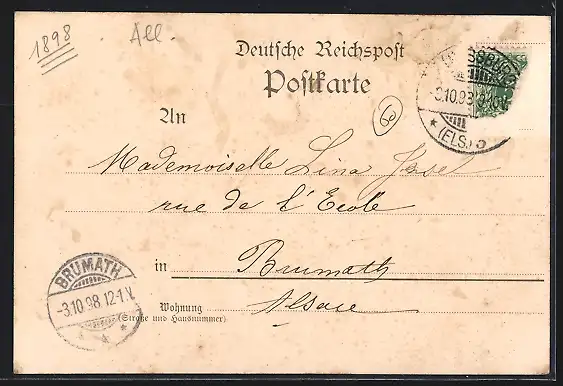 1898
All.
Deutsche Reichspost
Postkarte
60
An
Mademoiselle Lina
rue de l'Ecole
in Brumath
Alsace
Wohnung
(Straße und Hausnummer)
BRUMATH
-3.10.98.12-1N.
-3.10.98
(ELS.)